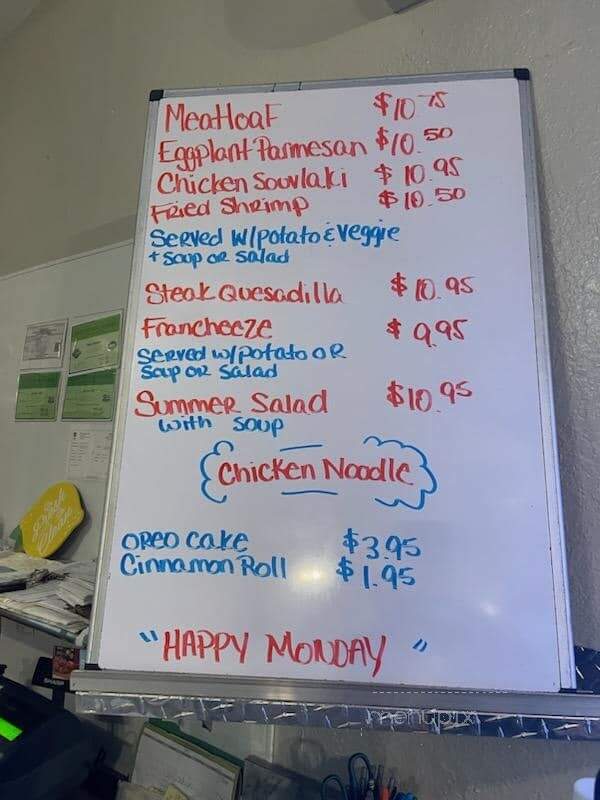 Meatloaf $10.75
Eggplant Parmesan $10.50
Chicken Souvlaki $10.95
Fried Shrimp $10.50
Served w/potato & veggie
+ Soup or salad
Steak Quesadilla $10.95
Francheeze $9.95
Served w/potato OR
Soup or Salad
Summer Salad $10.95
with soup
Chicken Noodle
OREO Cake $3.95
Cinnamon Roll $1.95
"HAPPY MONDAY"
menupix